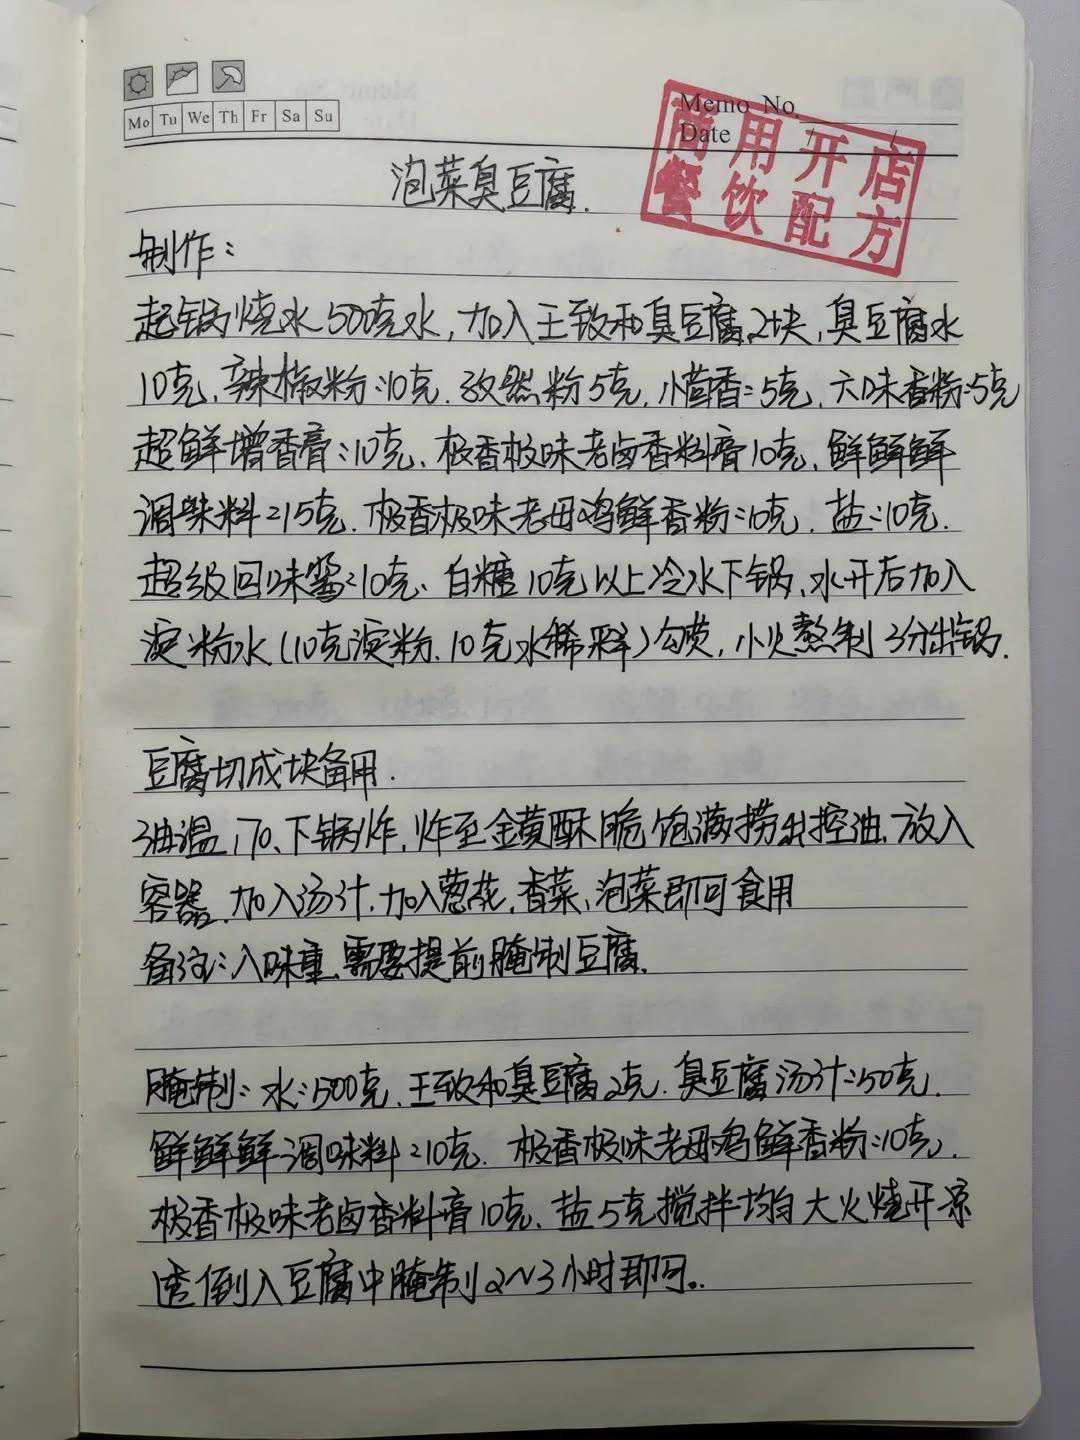 Mo Tu We Th Fr Sa Su
Memo No.
Date / /
商用开店
餐饮配方
泡菜臭豆腐.
制作:
起锅烧水500克水,加入王致和臭豆腐2块,臭豆腐水
10克,辣椒粉:10克.孜然粉5克,小茴香:5克,六味香粉:5克
超鲜增香膏:10克、极香极味老卤香料膏10克,鲜鲜鲜
调味料:15克.极香极味老母鸡鲜香粉:10克,盐:10克.
超级回味酱:10克、白糖10克以上冷水下锅,水开后加入
淀粉水(10克淀粉.10克水稀释)勾芡,小火熬制3分出锅.
豆腐切成块备用.
油温170、下锅炸,炸至金黄酥脆饱满捞出控油,放入
容器,加入汤汁,加入葱花,香菜,泡菜即可食用
备注:入味重,需要提前腌制豆腐.
腌制:水:500克.王致和臭豆腐2克.臭豆腐汤汁:50克.
鲜鲜鲜调味料:10克.极香极味老母鸡鲜香粉:10克.
极香极味老卤香料膏10克、盐5克搅拌均匀大火烧开凉
透倒入豆腐中腌制2~3小时即可..